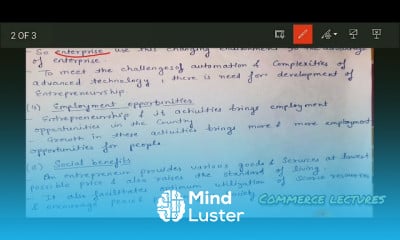 2 OF 3
So enterprise use this changing environment
of enterprise.
To meet the challenges of automation & Complexities of
advanced technology, there is need for development of
Entrepreneurship.
Employment opportunities
Entrepreneurship & it activities brings employment
opportunities in the Country
Growth in these activities brings more & more employment
opportunities for people
Social benefits
An entrepreneur provides various goods & Services at lowest
possible price & also raises the standard of living.
It also facilitates optimum utilization of Scarce resources
& encourage peace
Mind
Luster
COMMERCE LECTURES